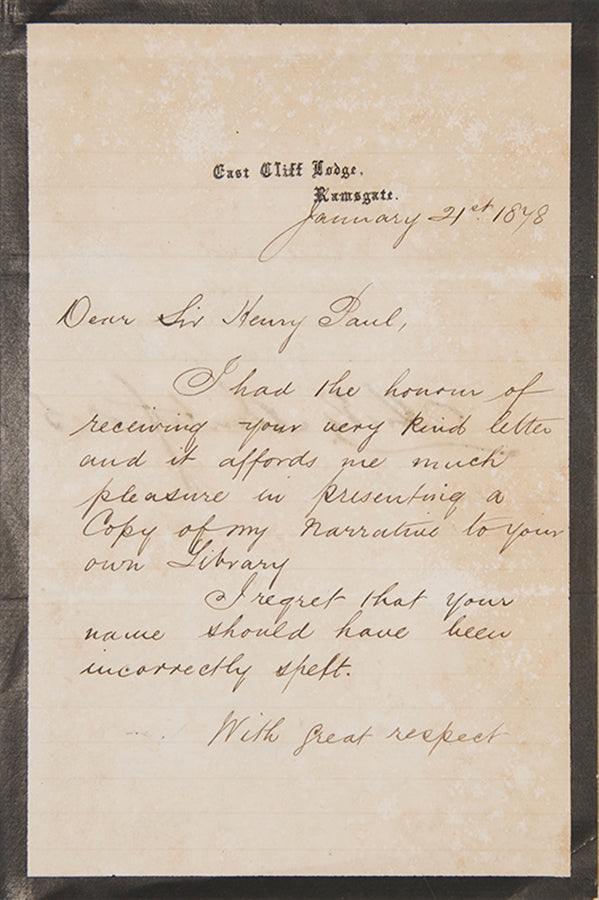 East Cliff Lodge,
Ramsgate.
January 21st 1878
Dear Sir Henry Paul,
I had the honour of
receiving your very kind letter
and it affords me much
pleasure in presenting a
Copy of my Narrative to your
own Library
I regret that your
name should have been
incorrectly spelt.
With great respect